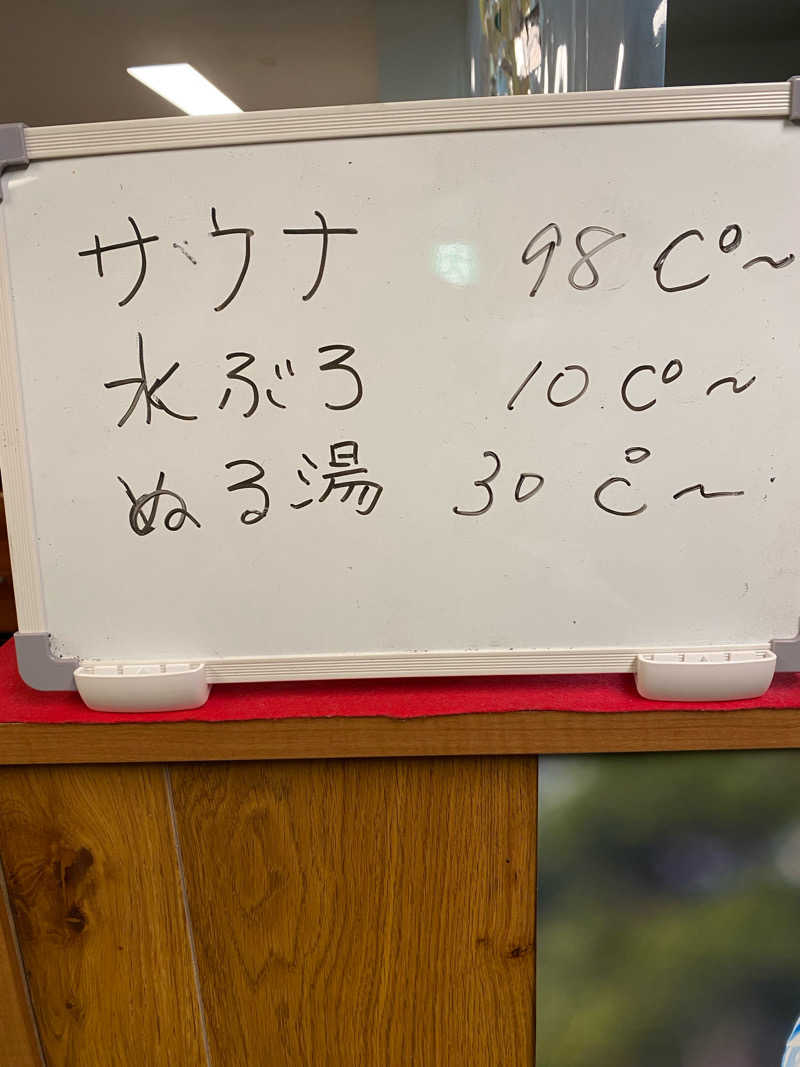 サウナ 98 C°~
水ぶろ 10 C°~
ぬる湯 30 °C~